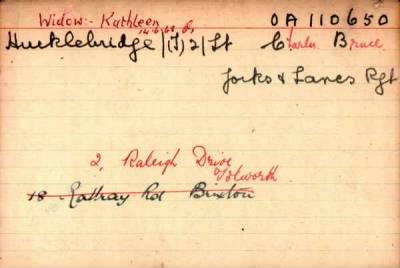 Widow:- Kathleen OA110650
14.6.68
Hucklebridge /(T) 2/Lt Charles Bruce
Yorks & Lancs Rgt
2, Raleigh Drive
Tolworth
18 Rattray Rd Brixton